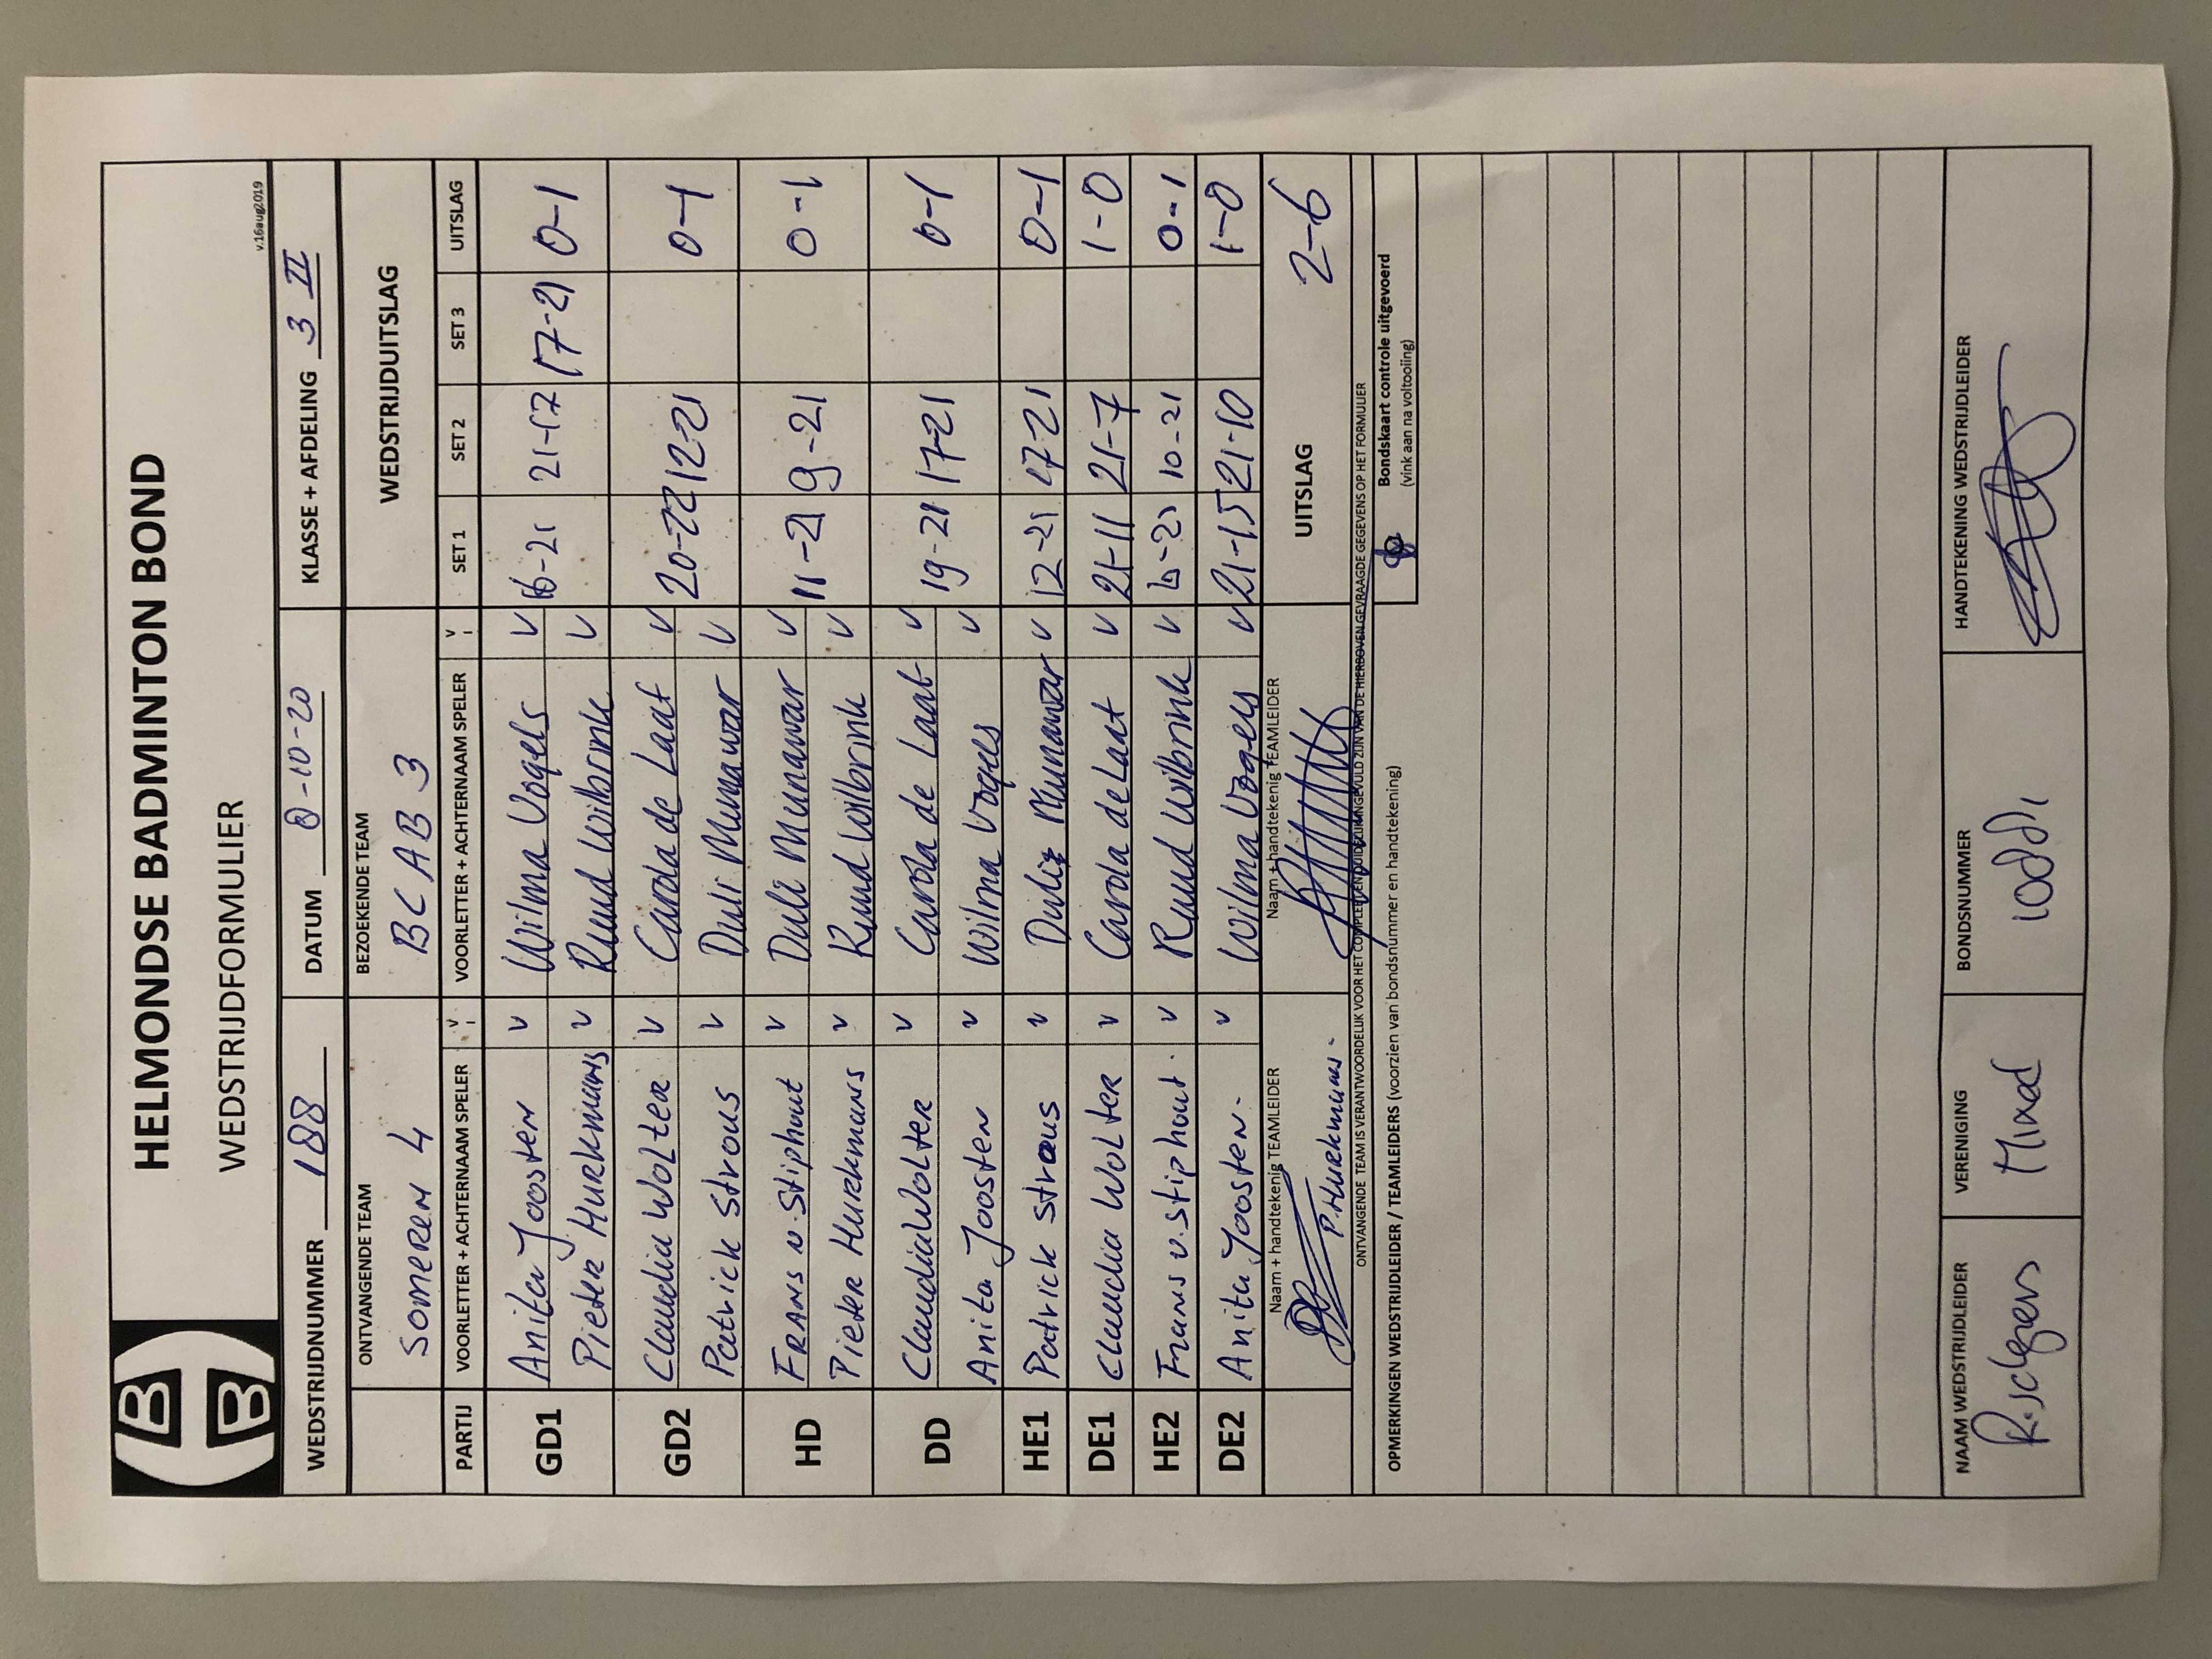 HELMONDSE BADMINTON BOND
WEDSTRIJDFORMULIER
v.16aug2019
WEDSTRIJDNUMMER 188 DATUM 8-10-20 KLASSE + AFDELING 3 II
ONTVANGENDE TEAM BEZOEKENDE TEAM WEDSTRIJDUITSLAG
SOMEREN 4 BC AB 3
PARTIJ VOORLETTER + ACHTERNAAM SPELER V VOORLETTER + ACHTERNAAM SPELER V SET 1 SET 2 SET 3 UITSLAG
GD1 Anita Joosten v Wilma Vogels v 16-21 21-17 17-21 0-1
Pieter Hurkmans v Ruud Wilbrink v
GD2 Claudia Wolter v Carola de Laat v 20-22 12-21 0-1
Patrick Strous v Duli Munawar v
HD Frans v. Stiphout v Duli Munawar v 11-21 9-21 0-1
Pieter Hurkmans v Ruud Wilbrink v
DD Claudia Wolter v Carola de Laat v 19-21 17-21 0-1
Anita Joosten v Wilma Vogels v
HE1 Patrick Strous v Duli Munawar v 12-21 17-21 0-1
DE1 Claudia Wolter v Carola de Laat v 21-11 21-7 1-0
HE2 Frans v. Stiphout v Ruud Wilbrink v 6-21 10-21 0-1
DE2 Anita Joosten v Wilma Vogels v 21-15 21-10 1-0
Naam + handtekenig TEAMLEIDER Naam + handtekenig TEAMLEIDER UITSLAG 2-6
P. Hurkmans
ONTVANGENDE TEAM IS VERANTWOORDELIJK VOOR HET COMPLEET EN DUIDELIJK INGEVULD ZIJN VAN DE HIERBOVEN GEVRAAGDE GEGEVENS OP HET FORMULIER
OPMERKINGEN WEDSTRIJDLEIDER / TEAMLEIDERS (voorzien van bondsnummer en handtekening)
Bondskaart controle uitgevoerd
(vink aan na voltooiing)
NAAM WEDSTRIJDLEIDER VERENIGING BONDSNUMMER HANDTEKENING WEDSTRIJDLEIDER
Mixed